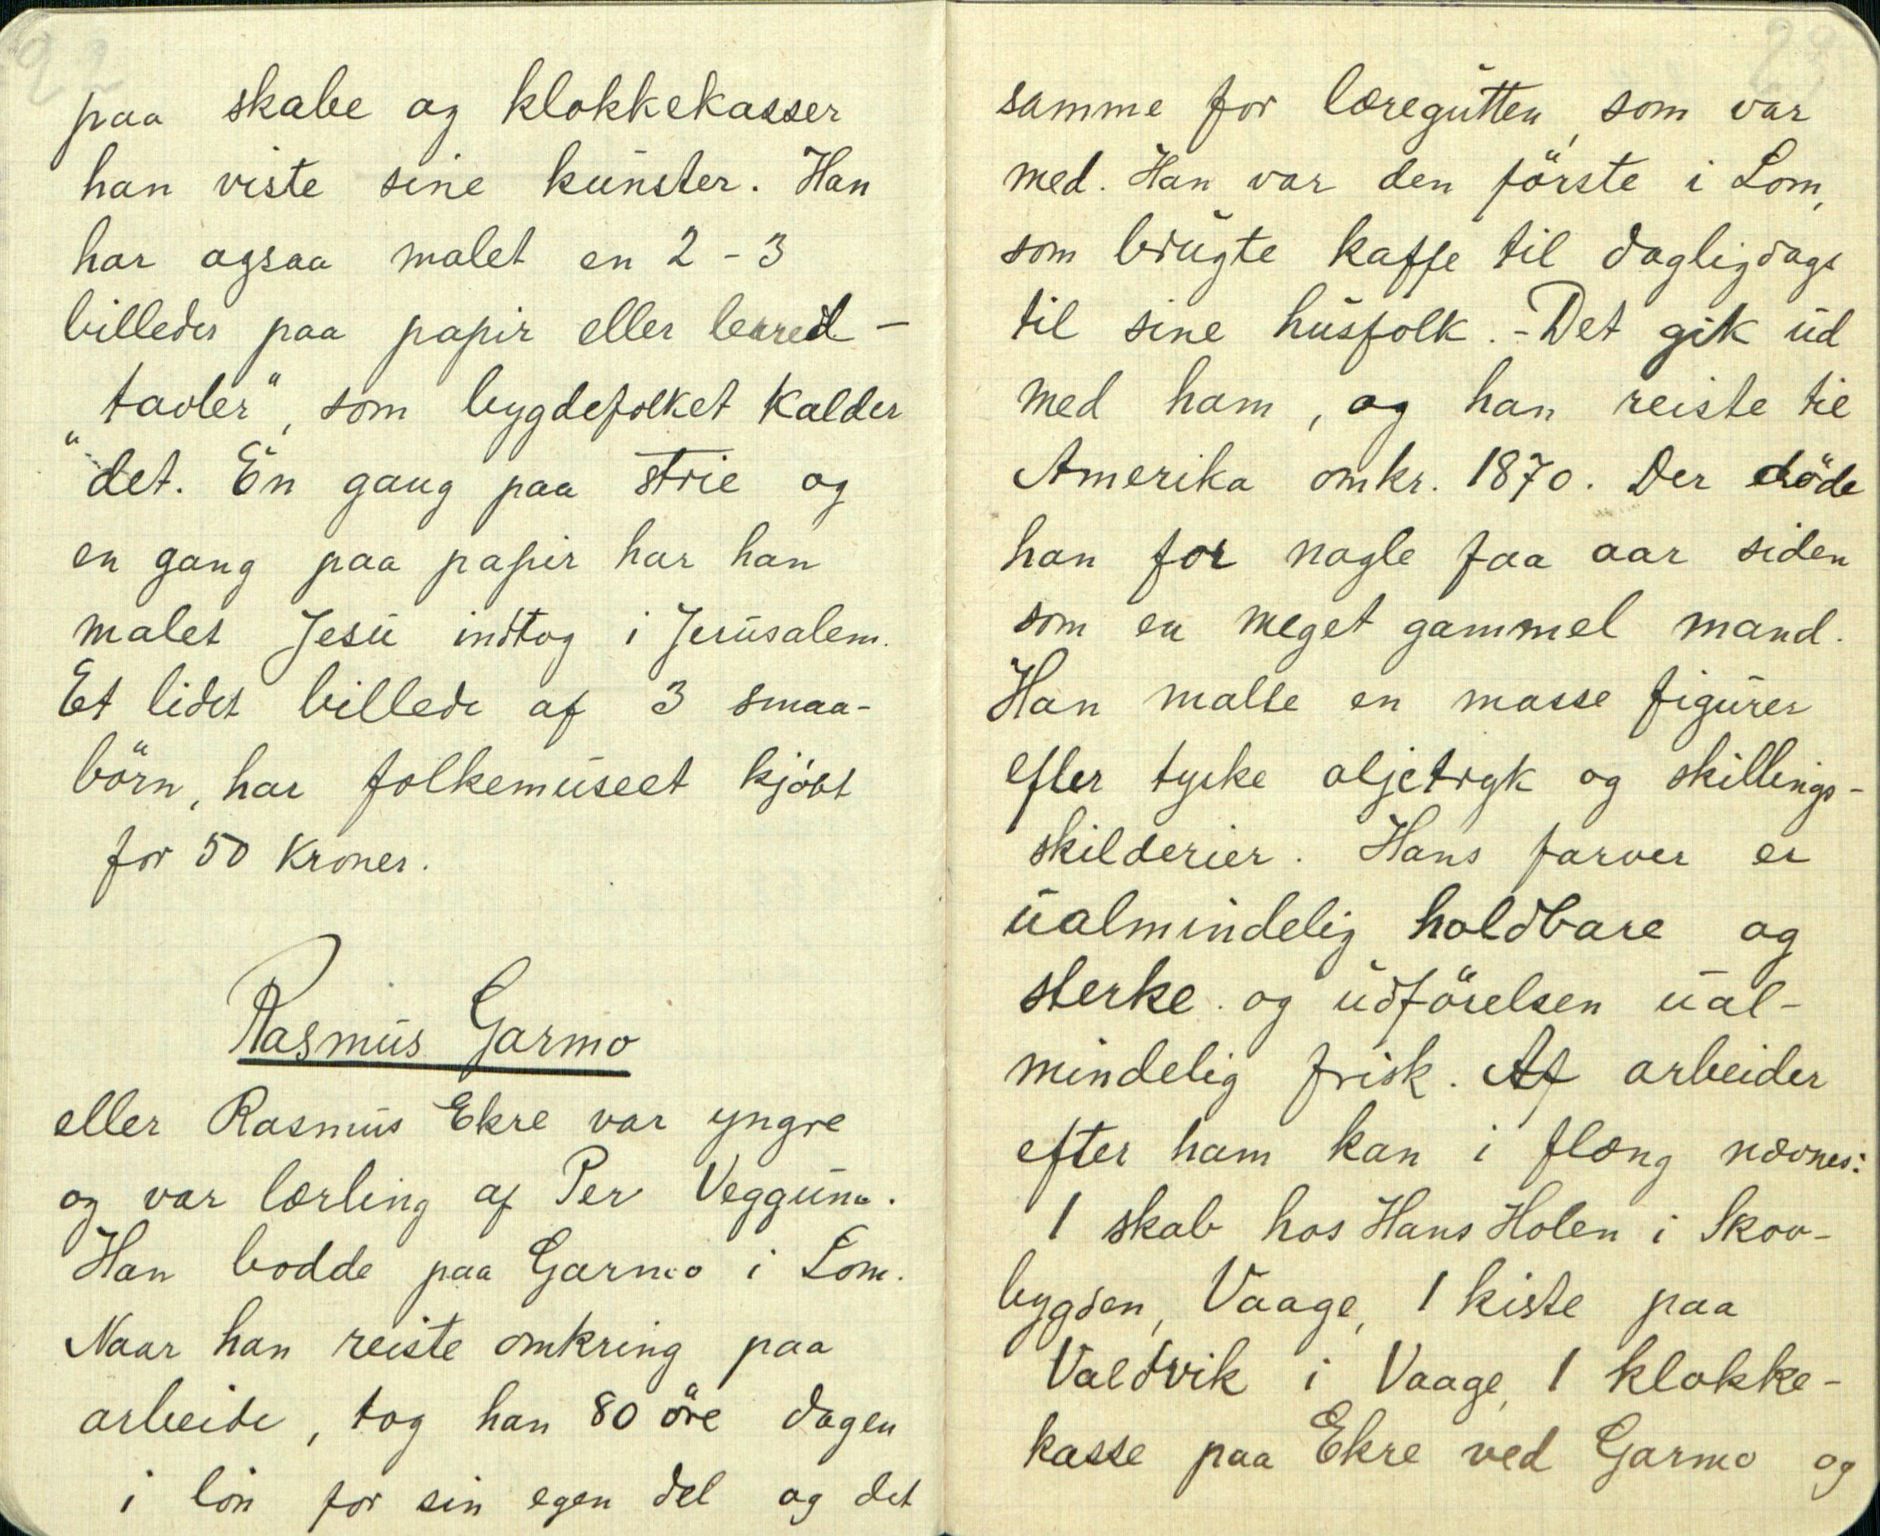 22
paa skabe og klokkekasser
han viste sine kunster. Han
har ogsaa malet en 2 - 3
billeder paa papir eller lerred -
"tavler", som bygdefolket kalder
det. En gang paa strie og
en gang paa papir har han
malet Jesu indtog i Jerusalem.
Et lidet billede af 3 smaa-
börn, har folkemuseet kjöbt
for 50 kroner.
Rasmus Garmo
eller Rasmus Ekre var yngre
og var lærling af Per Veggum.
Han bodde paa Garmo i Lom.
Naar han reiste omkring paa
arbeide, tog han 80 öre dagen
i lön for sin egen del og det
23
samme for læregutten, som var
med. Han var den förste i Lom,
som brugte kaffe til dagligdags
til sine husfolk. - Det gik ud
med ham, og han reiste til
Amerika omkr. 1870. Der döde
han for nogle faa aar siden
som en meget gammel mand.
Han malte en masse figurer
efter tyske oljetryk og skillings-
skilderier. Hans farver er
ualmindelig holdbare og
sterke og udförelsen ual-
mindelig frisk. Af arbeider
efter ham kan i flæng nævnes:
1 skab hos Hans Holen i Skov-
bygden, Vaage, 1 kiste paa
Valdvik i Vaage, 1 klokke-
kasse paa Ekre ved Garmo og